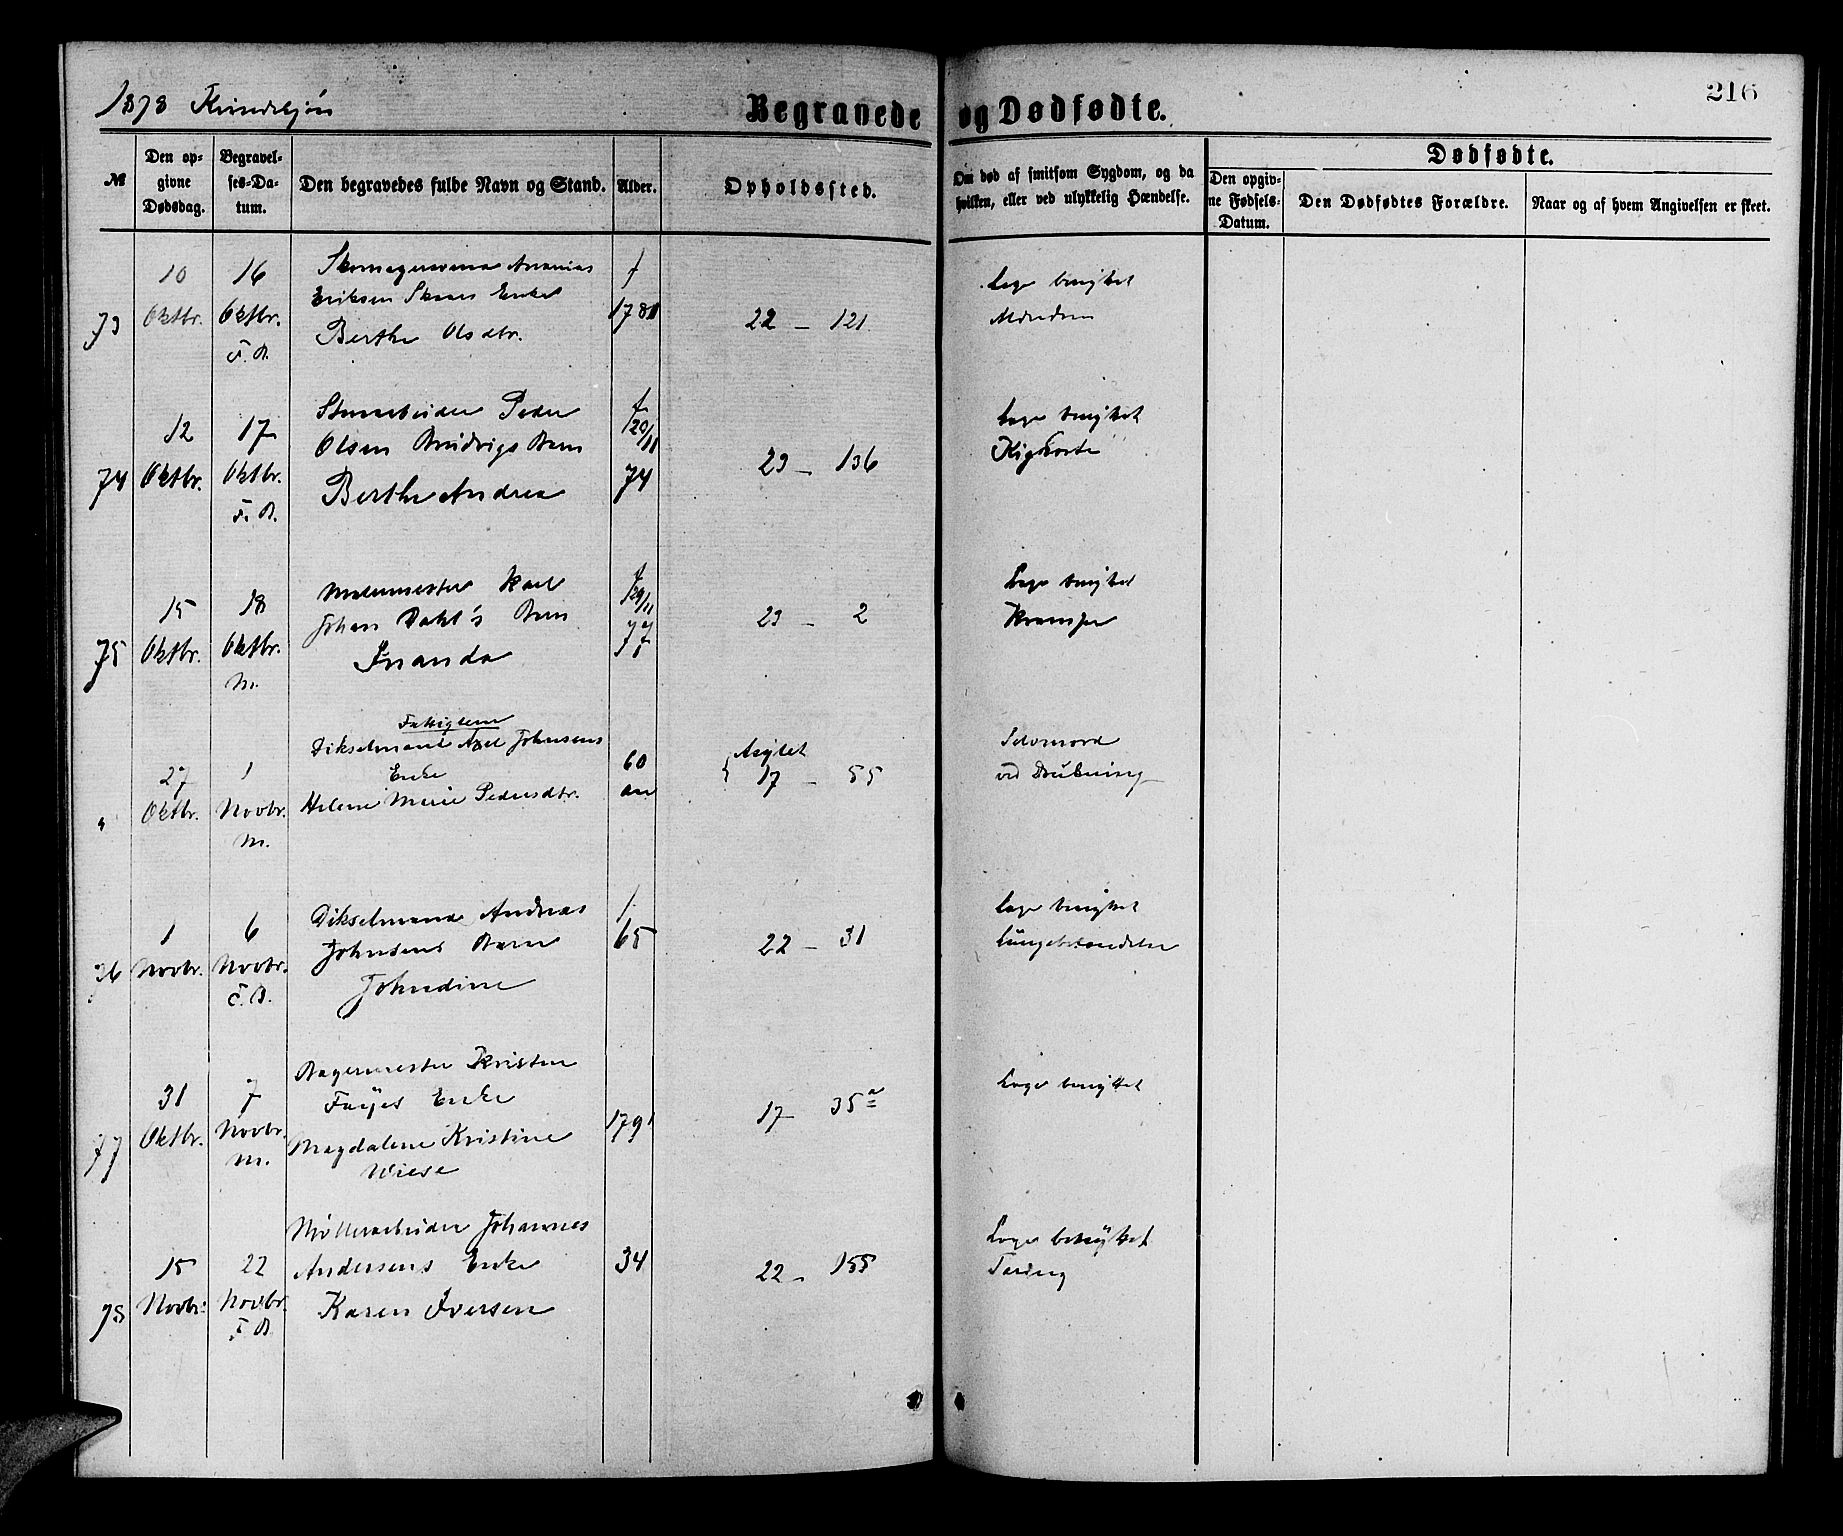 1878 Kvindekjøn
Begravede og Dødfødte.
216
№
Den opgivne Dødsdag.
Begravelses-Datum.
Den begravedes fulde Navn og Stand.
Alder.
Opholdssted.
Om død af smitsom Sygdom, og da hvilken, eller ved ulykkelig Hændelse.
Dødfødte.
Den opgivne Fødsels-Datum.
Den Dødfødtes Forældre.
Naar og af hvem Angivelsen er skeet.
73
10 Oktbr.
16 Oktbr.
Ananias
Eriksen Enke
Berthe Olsdtr.
f
22 – 121
Læge benyttet
74
12 Oktbr.
17 Oktbr.
Peder
Olsen Barn
Berthe Andrea
f
20/11
74
23 – 136
Læge benyttet
Kighoste
75
15 Oktbr.
18 Oktbr.
M.
Malermester Karl
Johan Dahl's Barn
f
29/11
77
23 – 2
Læge benyttet
Krampe
"
27 Oktbr.
1 Novbr.
M.
Fattiglem
Dikselmand Axel Johnsens
Enke
Helene Marie Pedersdtr.
60
Asylet
17 – 55
Selvmord
ved Drukning
76
1 Novbr.
6 Novbr.
Dikselmand Andreas
Johnsens Barn
Johndine
f.
65
22 – 31
Læge benyttet
Lungebetændelse
77
31 Oktbr.
7 Novbr.
M.
Bagermester Kristen
Fayes Enke
Magdalene Kristine
Wiese
1791
17 – 35 a
Læge benyttet
78
15 Novbr.
22 Novbr.
Møllerarbeider Johannes
Andersens Enke
Karen Iversen
34
22 – 155
Læge benyttet
Tæring